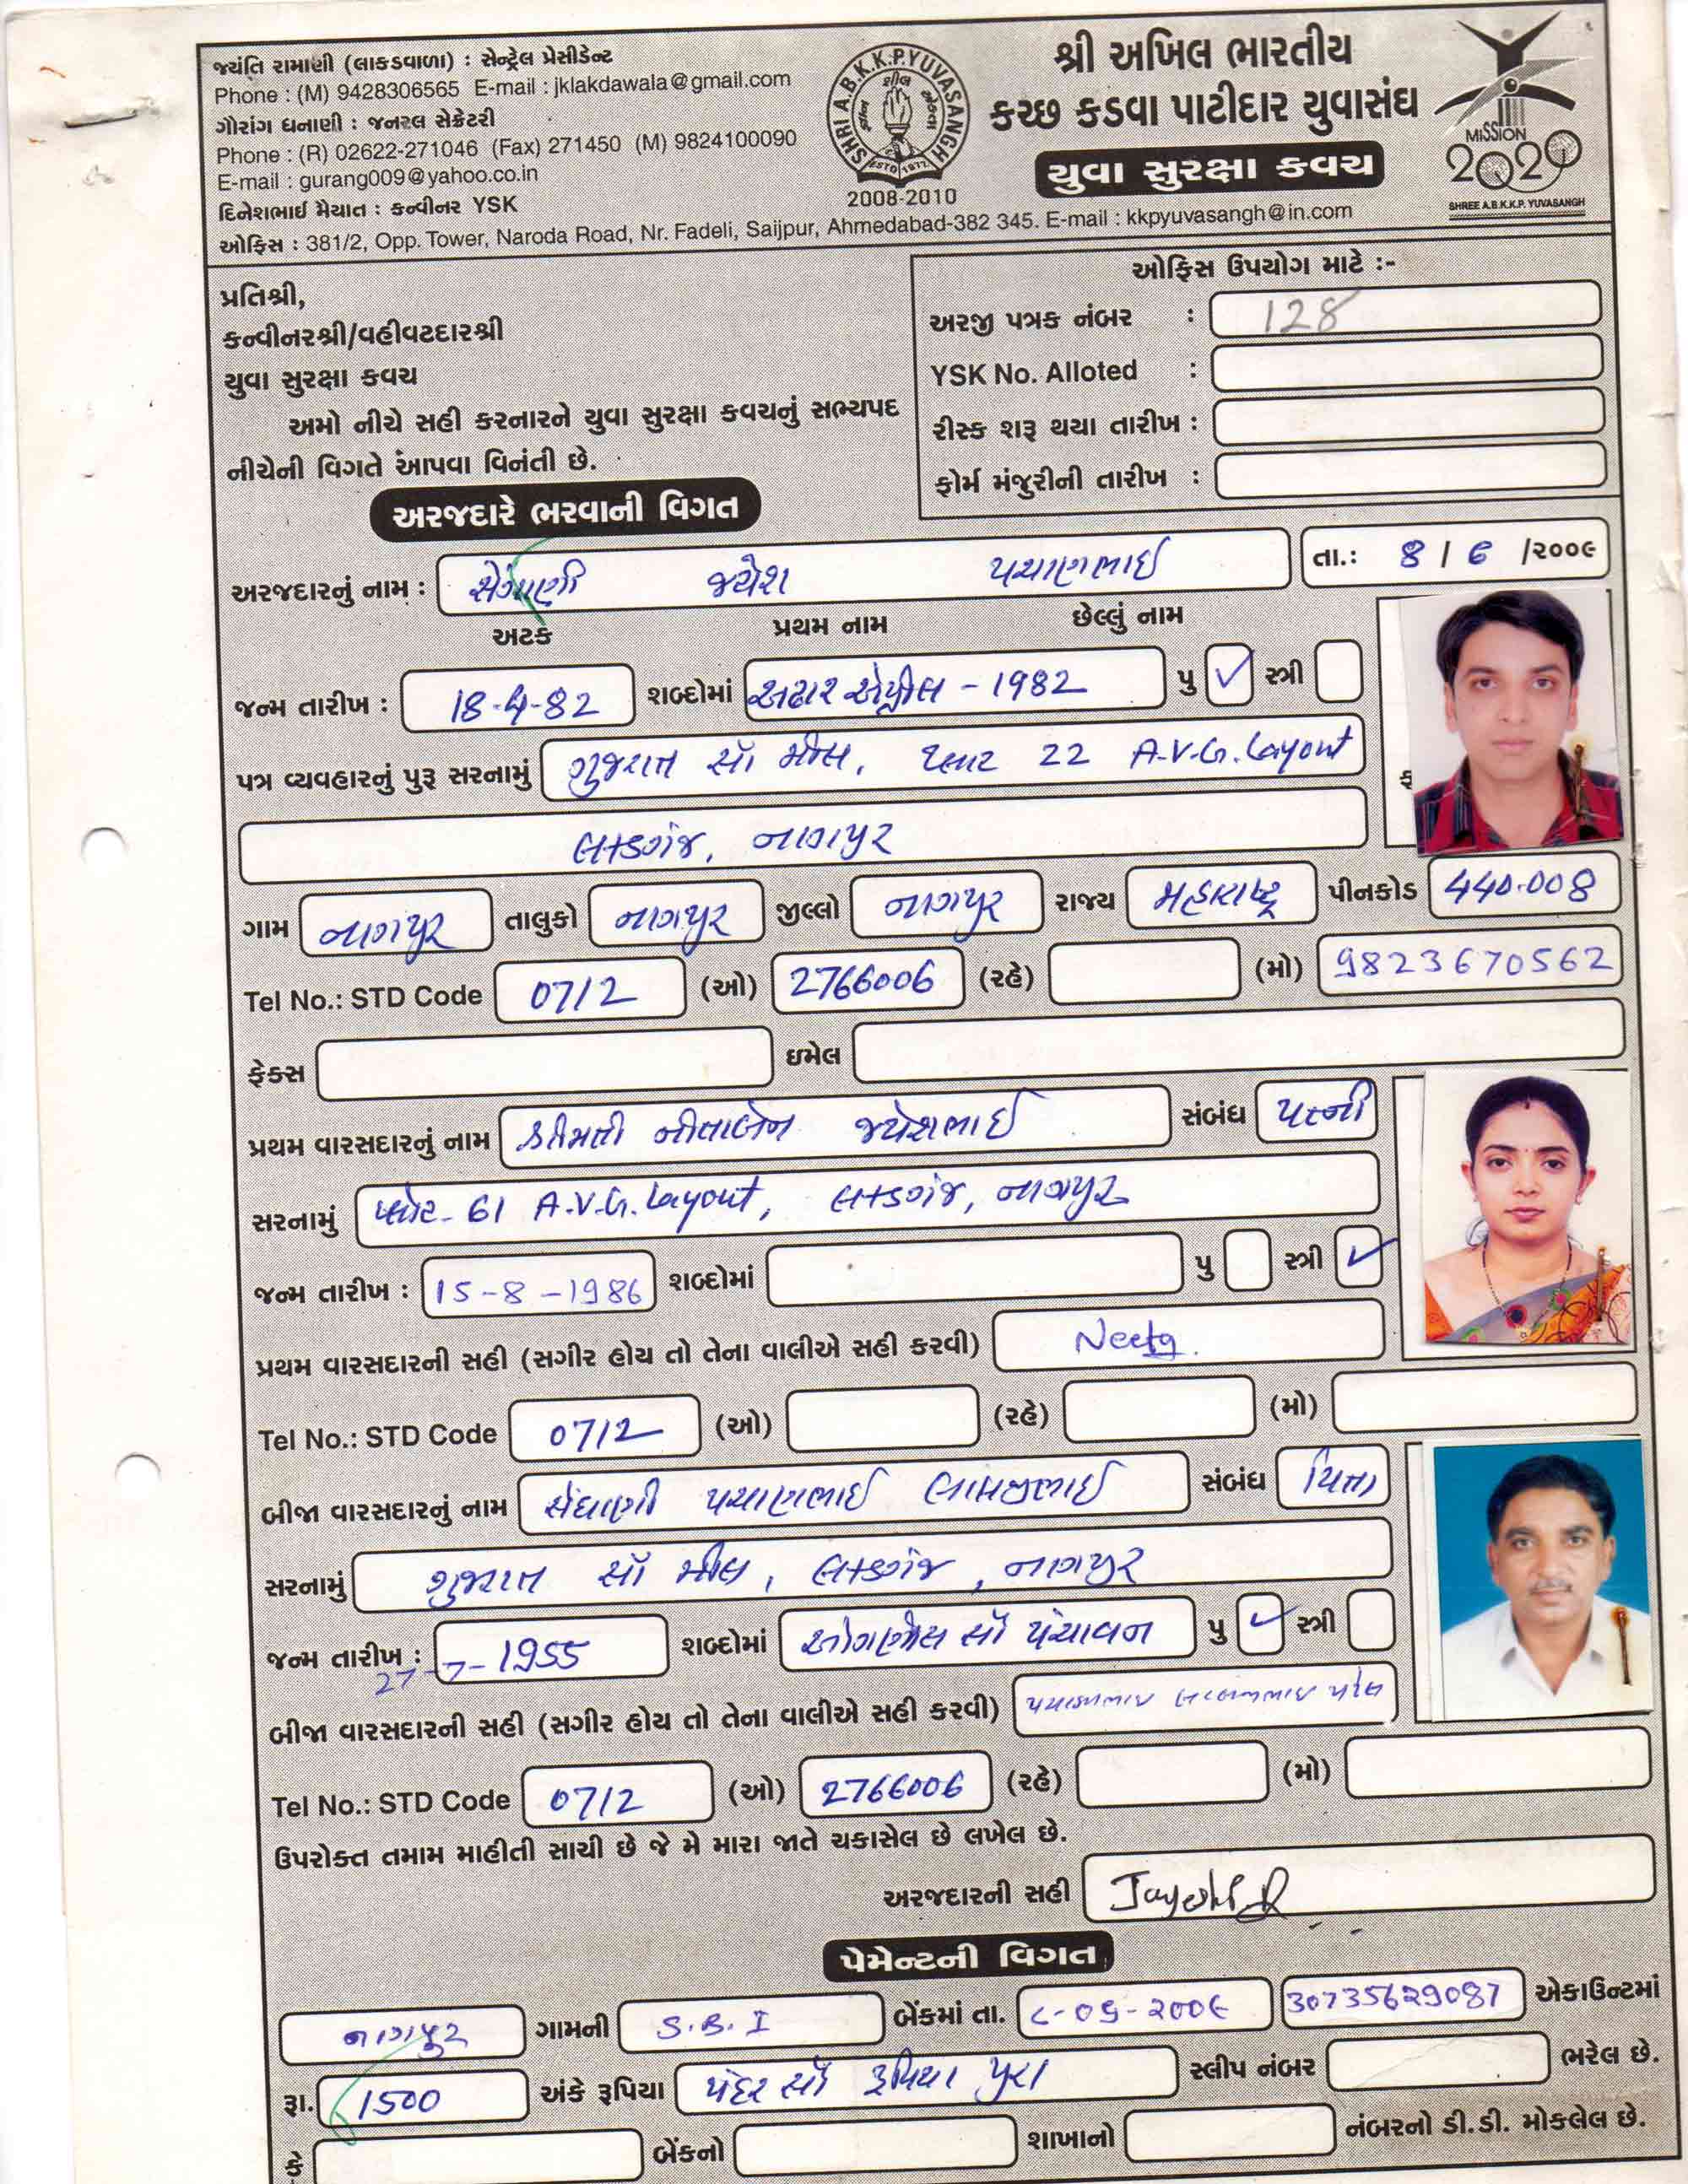 જયંતિ રામાણી (લાકડવાળા) : સેન્ટ્રેલ પ્રેસીડેન્ટ
Phone : (M) 9428306565 E-mail : jklakdawala@gmail.com
ગૌરાંગ ધનાણી : જનરલ સેક્રેટરી
Phone : (R) 02622-271046 (Fax) 271450 (M) 9824100090
E-mail : gurang009@yahoo.co.in
દિનેશભાઈ મૈયાત : કન્વીનર YSK
ઓફિસ : 381/2, Opp. Tower, Naroda Road, Nr. Fadeli, Saijpur, Ahmedabad-382 345. E-mail : kkpyuvasangh@in.com
SHRI A.B.K.K.P. YUVASANGH
ESTD 1977
2008-2010
શ્રી અખિલ ભારતીય
કચ્છ કડવા પાટીદાર યુવાસંઘ
યુવા સુરક્ષા કવચ
MISSION
2020
SHREE A.B.K.K.P. YUVASANGH
પ્રતિશ્રી,
કન્વીનરશ્રી/વહીવટદારશ્રી
યુવા સુરક્ષા કવચ
અમો નીચે સહી કરનારને યુવા સુરક્ષા કવચનું સભ્યપદ
નીચેની વિગતે આપવા વિનંતી છે.
ઓફિસ ઉપયોગ માટે :-
અરજી પત્રક નંબર : 128
YSK No. Alloted :
રીસ્ક શરૂ થયા તારીખ :
ફોર્મ મંજુરીની તારીખ :
અરજદારે ભરવાની વિગત
અરજદારનું નામ : જયેશ પચાણભાઈ તા.: 8 / 6 /૨૦૦૯
અટક પ્રથમ નામ છેલ્લું નામ
જન્મ તારીખ : 18-4-82 શબ્દોમાં અઢાર એપ્રીલ - 1982 પુ ✓ સ્ત્રી
પત્ર વ્યવહારનું પુરૂ સરનામું ગુજરાત સૉ મીલ, પ્લાટ 22 A.V.G. Layout
લકડગંજ, નાગપુર
ગામ નાગપુર તાલુકો નાગપુર જીલ્લો નાગપુર રાજ્ય મહારાષ્ટ્ર પીનકોડ 440.008
Tel No.: STD Code 0712 (ઓ) 2766006 (રહે) (મો) 9823670562
ફેક્સ ઇમેલ
પ્રથમ વારસદારનું નામ શ્રીમતી નીતાબેન જયેશભાઈ સંબંધ પત્ની
સરનામું પ્લોટ- 61 A.V.G. Layout, લકડગંજ, નાગપુર
જન્મ તારીખ : 15-8-1986 શબ્દોમાં પુ સ્ત્રી ✓
પ્રથમ વારસદારની સહી (સગીર હોય તો તેના વાલીએ સહી કરવી) Neeta
Tel No.: STD Code 0712 (ઓ) (રહે) (મો)
બીજા વારસદારનું નામ સેંઘાણી પચાણભાઈ લાલજીભાઈ સંબંધ પિતા
સરનામું ગુજરાત સૉ મીલ, લકડગંજ, નાગપુર
જન્મ તારીખ : 27-7-1955 શબ્દોમાં ઓગણીસ સૉ પંચાવન પુ ✓ સ્ત્રી
બીજા વારસદારની સહી (સગીર હોય તો તેના વાલીએ સહી કરવી) પચાણભાઇ લાલજીભાઇ પટેલ
Tel No.: STD Code 0712 (ઓ) 2766006 (રહે) (મો)
ઉપરોક્ત તમામ માહીતી સાચી છે જે મે મારા જાતે ચકાસેલ છે લખેલ છે.
અરજદારની સહી Jayesh
પેમેન્ટની વિગત
નાગપુર ગામની S.B.I બેંકમાં તા. ૮-૦૬-૨૦૦૯ 30735629087 એકાઉન્ટમાં
રૂા. 1500 અંકે રૂપિયા પંદર સૉ રૂપિયા પુરા સ્લીપ નંબર ભરેલ છે.
કે બેંકનો શાખાનો નંબરનો ડી.ડી. મોકલેલ છે.